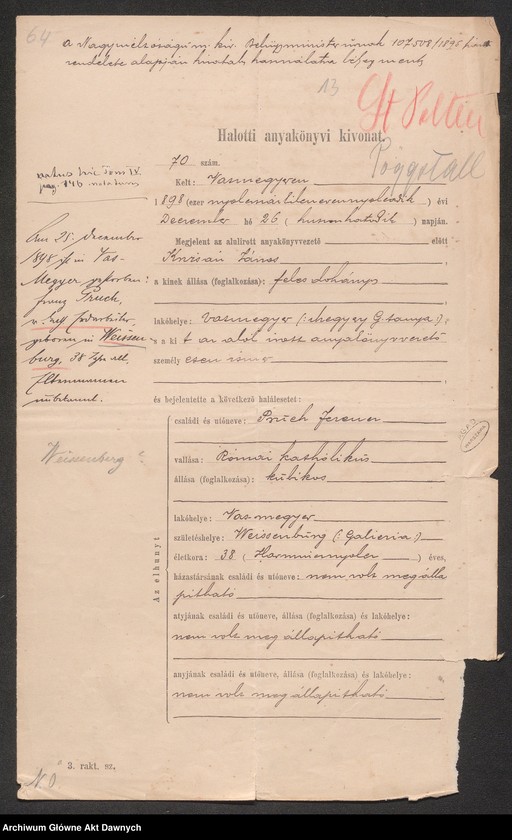 64
a Nagyméltóságú m. kir. Belügyminister úrnak 107508/1896 számú
rendelete alapján hivatalos használatra bélyegment.
13
St Pölten
Halotti anyakönyvi kivonat.
Pöggstall
70 szám.
Kelt: Vasmegyeren
1898 (ezer nyolcszázkilencvennyolcadik) évi
December hó 26 (huszonhatodik) napján.
pag. 146
Megjelent az alulirott anyakönyvvezető előtt
János
a kinek állása (foglalkozása): feles dohányos
lakóhelye: Vasmegyer (: Megyery G. tanya :)
s a kit az alól irott anyakönyvvezető
személyesen ismer
és bejelentette a következő halálesetet:
Am 25. Dezember
1898 ist in Vas-
Megyer gestorben:
Franz Pruch,
geboren in Weissen
burg, 38 Jahre alt.
Weissenberg?
Az elhunyt
családi és utóneve: Pruch Ferencz
vallása: Római katholikus
állása (foglalkozása): kubikos
lakóhelye: Vasmegyer
születéshelye: Weissenburg (: Galicia :)
életkora: 38 (Harmincnyolcz) éves,
házastársának családi és utóneve: nem volt megálla
pitható
atyjának családi és utóneve, állása (foglalkozása) és lakóhelye:
nem volt megállapitható
anyjának családi és utóneve, állása (foglalkozása) és lakóhelye:
nem volt megállapitható
3. rakt. sz.
Archiwum Główne Akt Dawnych